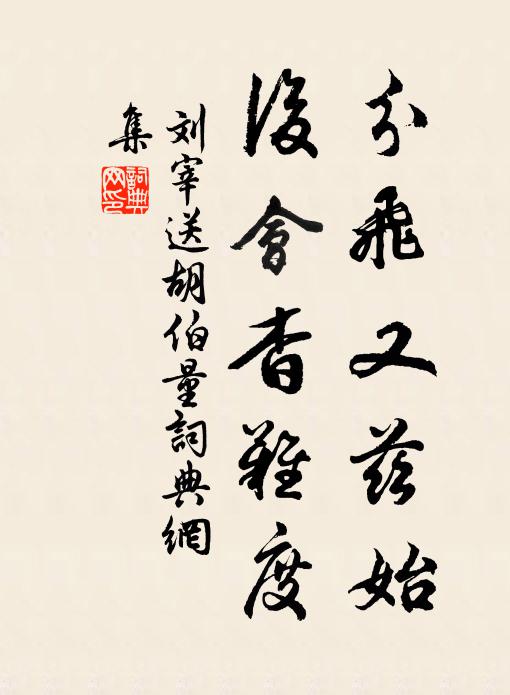 分飛又茲始
後會杳難度
刘宰送胡伯量詞典網
集
詞典
网印